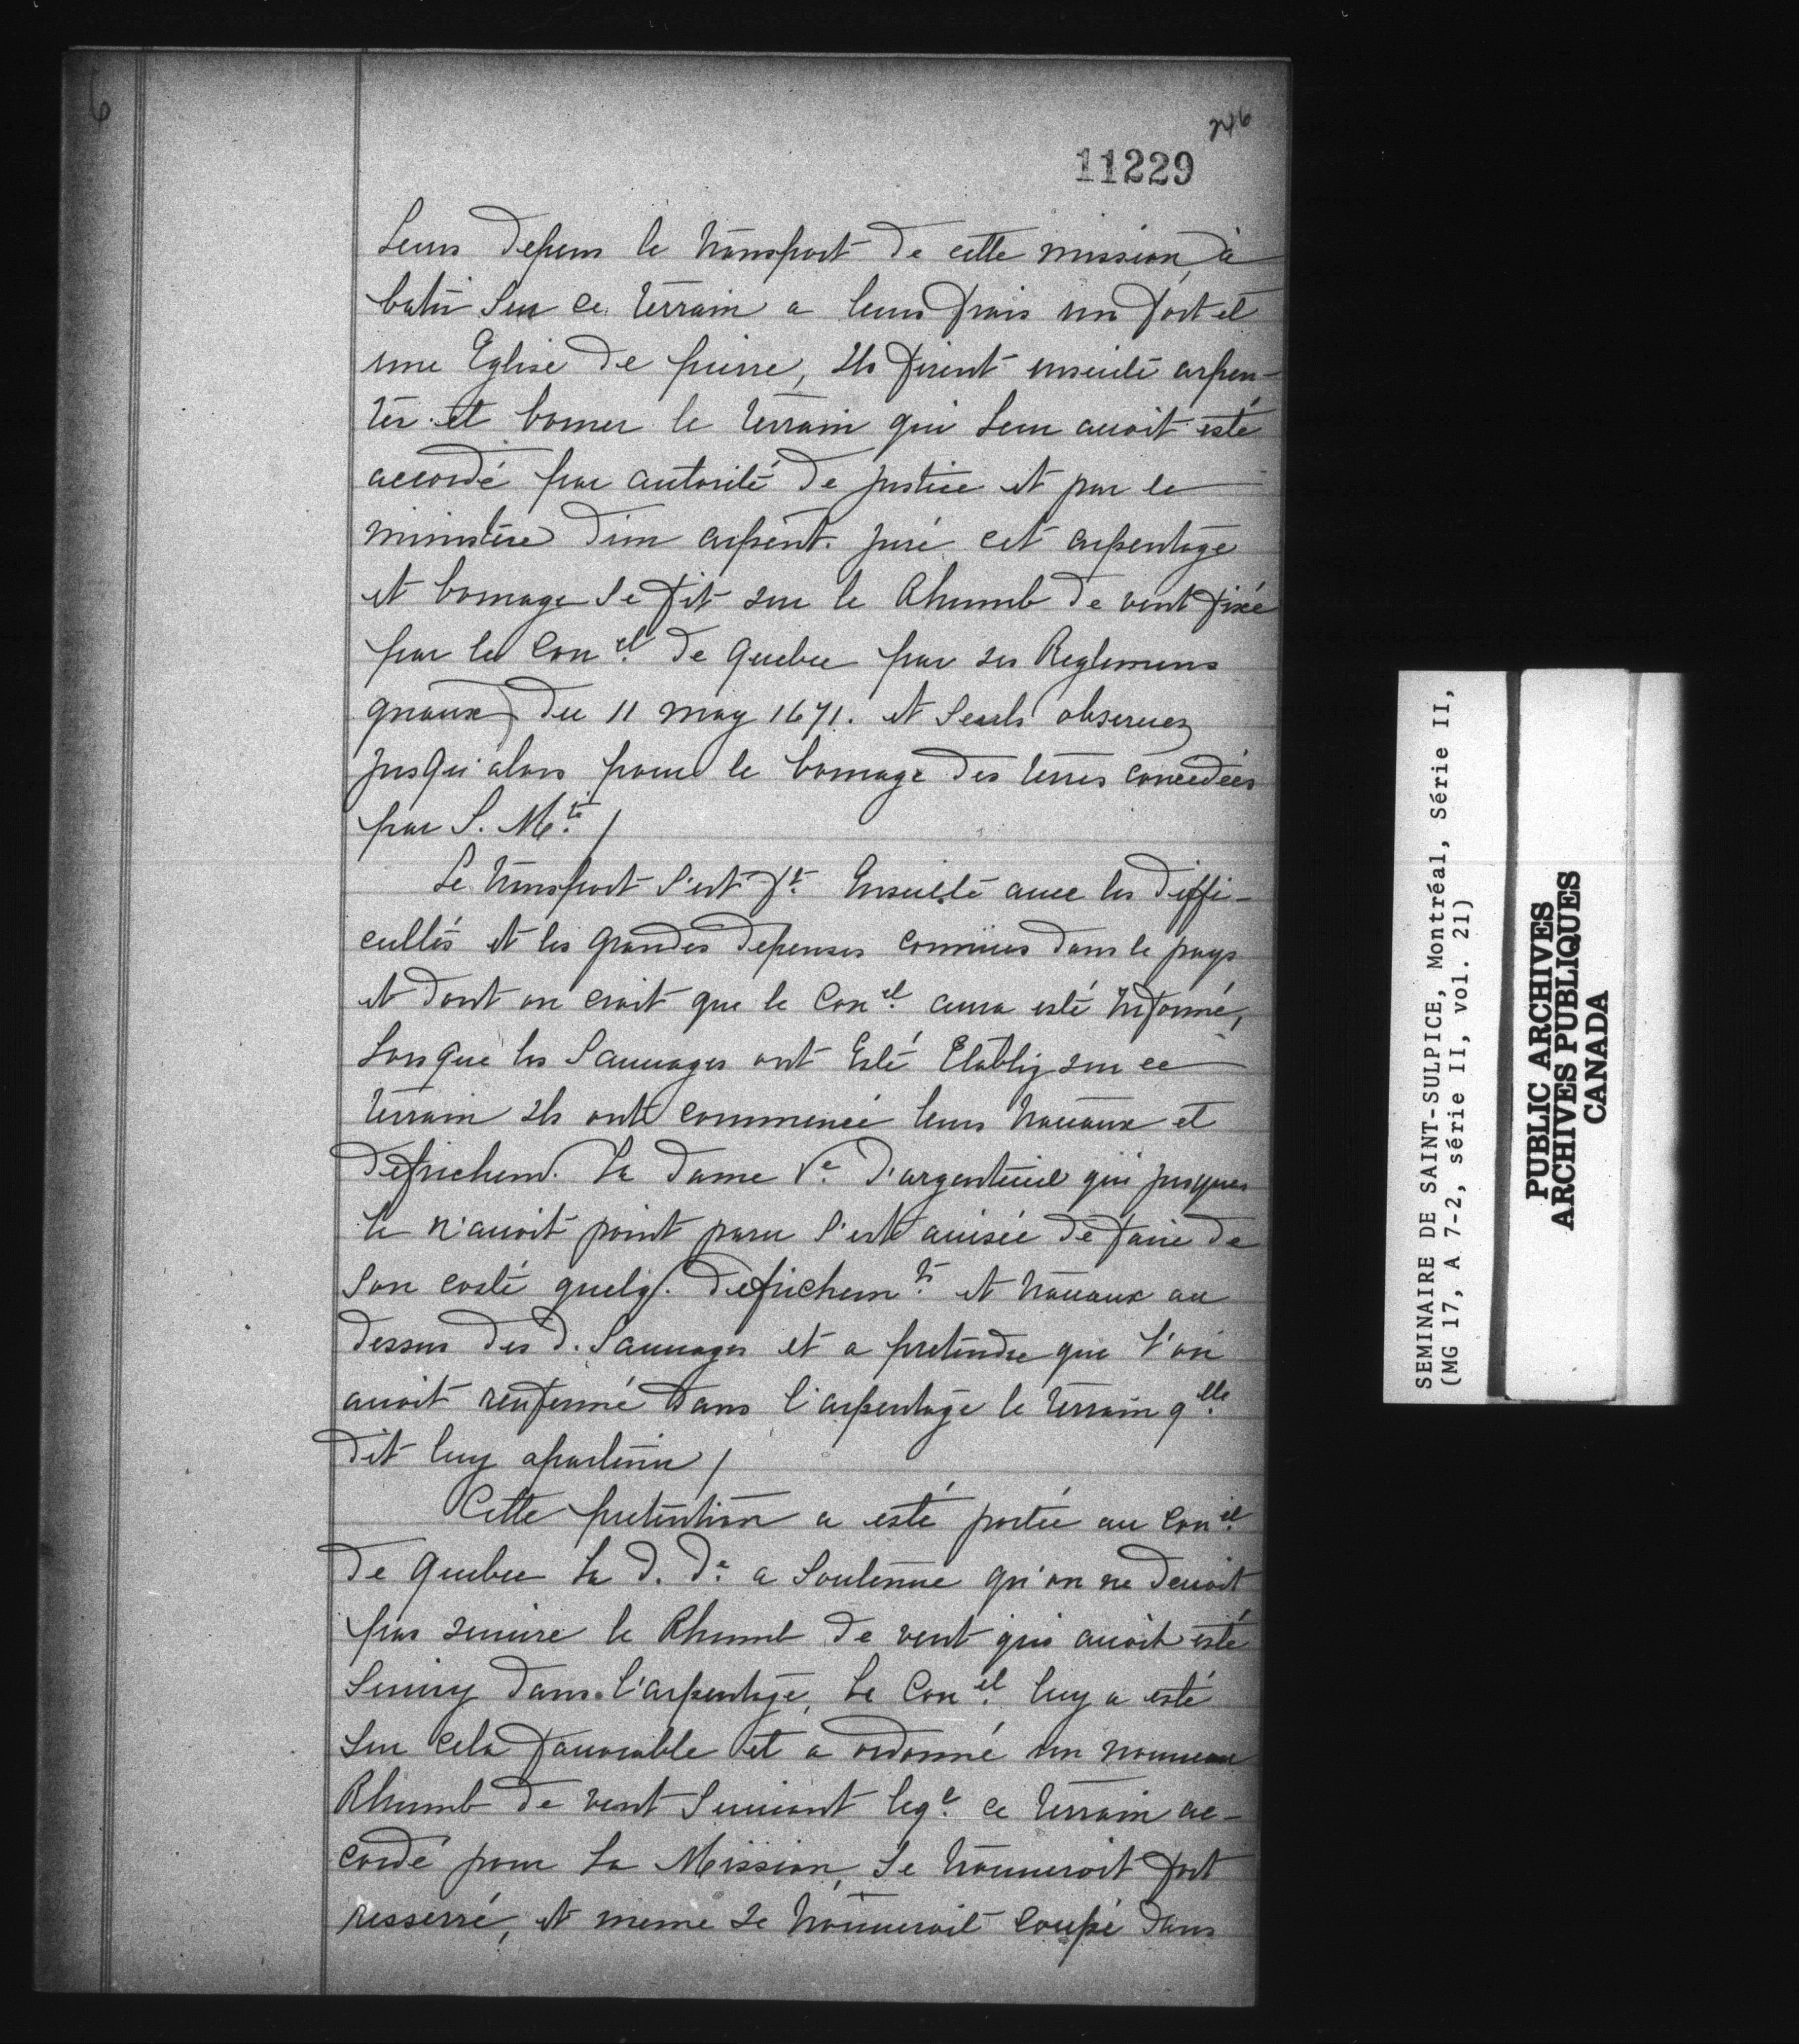 6
246
11229
Leurs depens le transport de cette mission, à
batir Sur ce terrain a leurs frais un fort et
une Eglise de pierre, Ils firent ensuite arpen-
ter et borner le terrain qui Leur auoit esté
accordé par autorité de justice et par le
ministère d'un arpent. juré cet arpentage
et bornage Se fit sur le Rhumb de vent fixée
par le Con.el de Quebec par ses Reglemens
gnaux du 11 may 1671. et Seuls obseruez
jusqu'alors pour le bornage des terres concedées
par S. M.té /
Le transport S'est f.t Ensuitte auec les diffi-
cultés et les grandes depenses connues dans le pays
et dont on croit que le Con.el aura esté Informé,
Lorsque les Sauuages ont Esté Etablis sur ce
terrain Ils ont commencé leurs trauaux et
defrichem. La dame V.e d'argenteuil qui jusques
la n'auoit point paru S'est auisée de faire de
Son costé quelq. defrichem.ts et trauaux au
dessus des d. Sauuages et a pretendre que l'on
auoit renfermé dans l'arpentage le terrain q.elle
dit luy apartenir /
Cette pretention a esté portée au Con.el
de Quebec La d. d.e a Soutenue qu'on ne deuoit
pas suiure le Rhumb de vent qui auoit esté
Suiuy dans l'arpentage, Le Con.el luy a esté
Sur cela fauorable et a ordonné un nouueau
Rhumb de vent Suiuant leq.l ce terrain ac-
cordé pour La Mission, Se trouueroit fort
resserré, et meme se trouueroit coupé dans
SEMINAIRE DE SAINT-SULPICE, Montréal, Série II,
(MG 17, A 7-2, série II, vol. 21)
PUBLIC ARCHIVES
ARCHIVES PUBLIQUES
CANADA